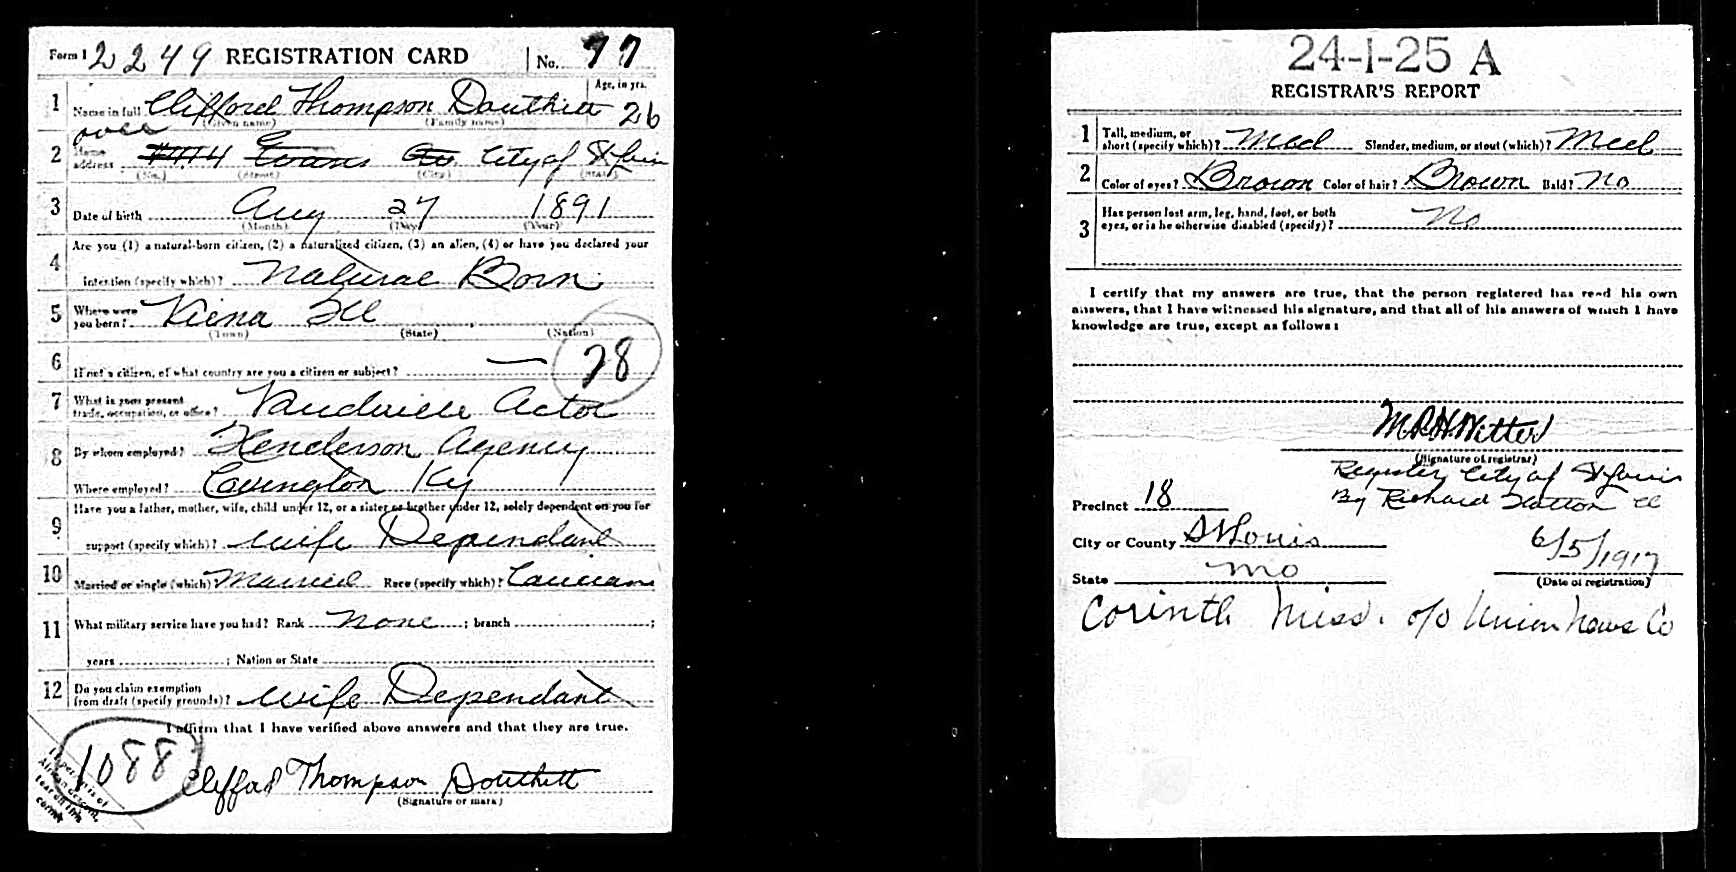 Form 1 2249 REGISTRATION CARD No. 77
1 Name in full Clifford Thompson Douthitt Age, in yrs. 26
(Given name) (Family name)
over
2 Home address 4414 Evans Av City of St Louis
(No.) (Street) (City) (State)
3 Date of birth Aug 27 1891
(Month) (Day) (Year)
4 Are you (1) a natural-born citizen, (2) a naturalized citizen, (3) an alien, (4) or have you declared your
intention (specify which)? Natural Born
5 Where were you born? Viena Ill
(Town) (State) (Nation)
28
6 If not a citizen, of what country are you a citizen or subject? —
7 What is your present trade, occupation, or office? Vaudville Actor
8 By whom employed? Henderson Agency
Where employed? Covington Ky
9 Have you a father, mother, wife, child under 12, or a sister or brother under 12, solely dependent on you for
support (specify which)? Wife Dependant
10 Married or single (which)? Married Race (specify which)?
11 What military service have you had? Rank None ; branch ;
years ; Nation or State
12 Do you claim exemption from draft (specify grounds)? Wife Dependant
I affirm that I have verified above answers and that they are true.
1088
If person is of African descent, tear off this corner
Clifford Thompson Douthitt
(Signature or mark)
24-1-25 A
REGISTRAR'S REPORT
1 Tall, medium, or short (specify which)? Med Slender, medium, or stout (which)? Med
2 Color of eyes? Brown Color of hair? Brown Bald? No
3 Has person lost arm, leg, hand, foot, or both
eyes, or is he otherwise disabled (specify)? No
I certify that my answers are true, that the person registered has read his own
answers, that I have witnessed his signature, and that all of his answers of which I have
knowledge are true, except as follows:
Witter
(Signature of registrar)
Register City of St Louis
Precinct 18 By Richard
City or County St Louis 6/5/1917
State Mo (Date of registration)
Corinth Miss. c/o Union News Co